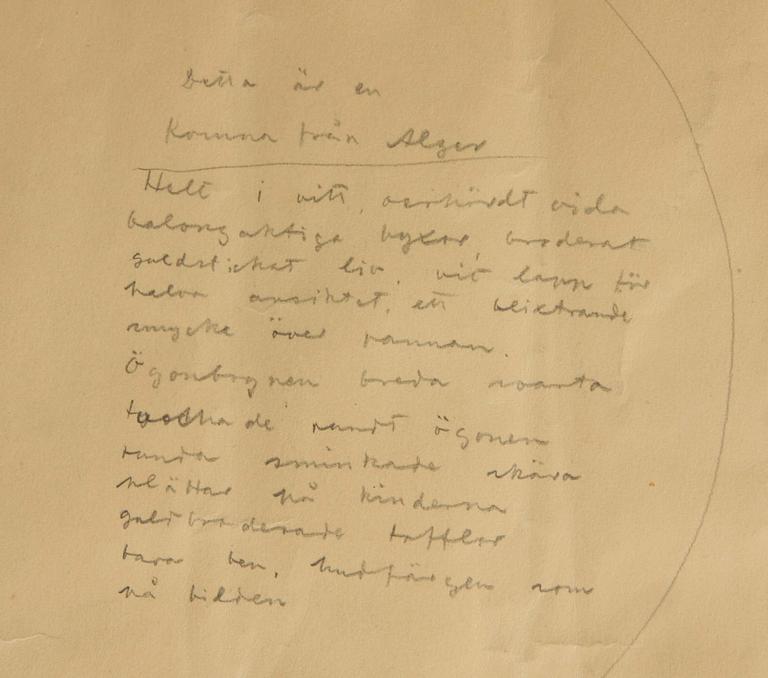 Detta är en
Komna från Alger
Helt i vitt, oerhördt vida
balongaktiga byxor, broderat
guldstickat liv, vit lapp för
halva ansiktet, ett blixtrande
smycke över pannan.
Ögonbrynen breda svarta
tuschade runt ögonen
runda sminkade skära
plättar på kinderna
guldbroderade tofflor
bara ben, hudfärgen som
på bilden